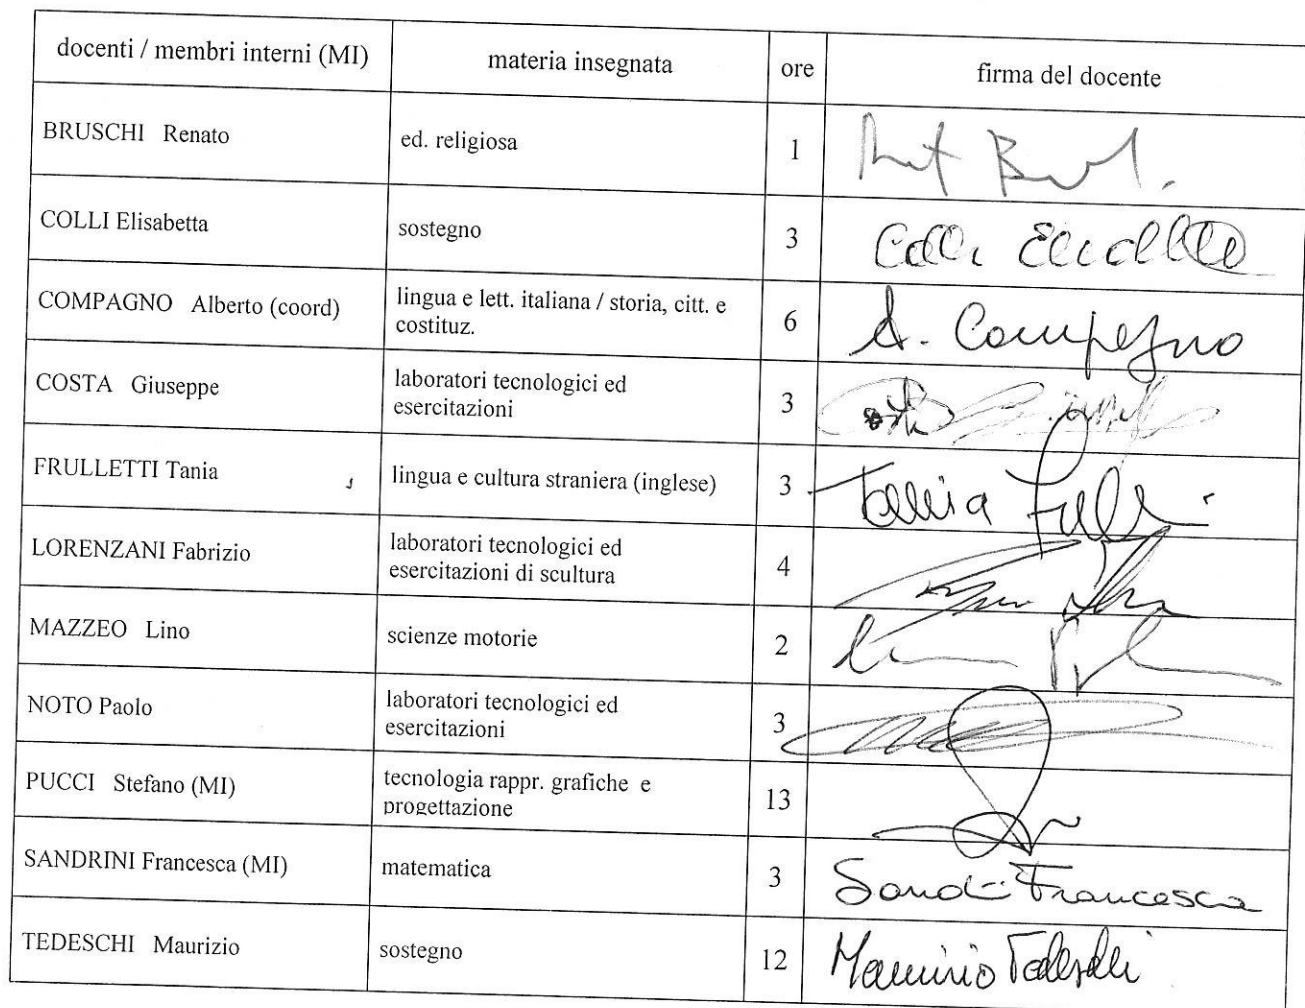 docenti / membri interni (MI) materia insegnata ore firma del docente
BRUSCHI Renato ed. religiosa 1
COLLI Elisabetta sostegno 3 Colli
COMPAGNO Alberto (coord) lingua e lett. italiana / storia, citt. e
costituz. 6 A. Compagno
COSTA Giuseppe laboratori tecnologici ed
esercitazioni 3
FRULLETTI Tania lingua e cultura straniera (inglese) 3 Tania
LORENZANI Fabrizio laboratori tecnologici ed
esercitazioni di scultura 4
MAZZEO Lino scienze motorie 2
NOTO Paolo laboratori tecnologici ed
esercitazioni 3
PUCCI Stefano (MI) tecnologia rappr. grafiche e
progettazione 13
SANDRINI Francesca (MI) matematica 3 Francesca
TEDESCHI Maurizio sostegno 12 Maurizio Tedeschi